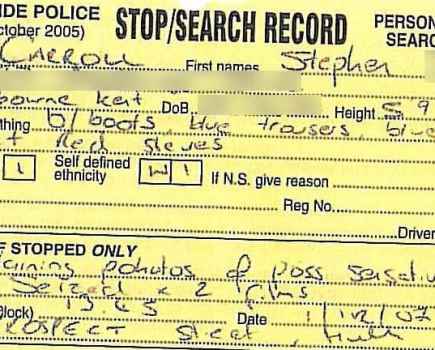 IDE POLICE STOP/SEARCH RECORD PERSON
ctober 2005) SEARC
Carroll First names Stephen
bourne kent DoB Height 5 9
thing b/ boots, blue trousers, blue
+ Red sleeves
1 Self defined ethnicity W 1 If N.S. give reason
Reg No.
Driver
F STOPPED ONLY
aining photos of poss sensativ
Seized x 2 films
Block) Date 1/12/07
ROSPECT Street, Hull